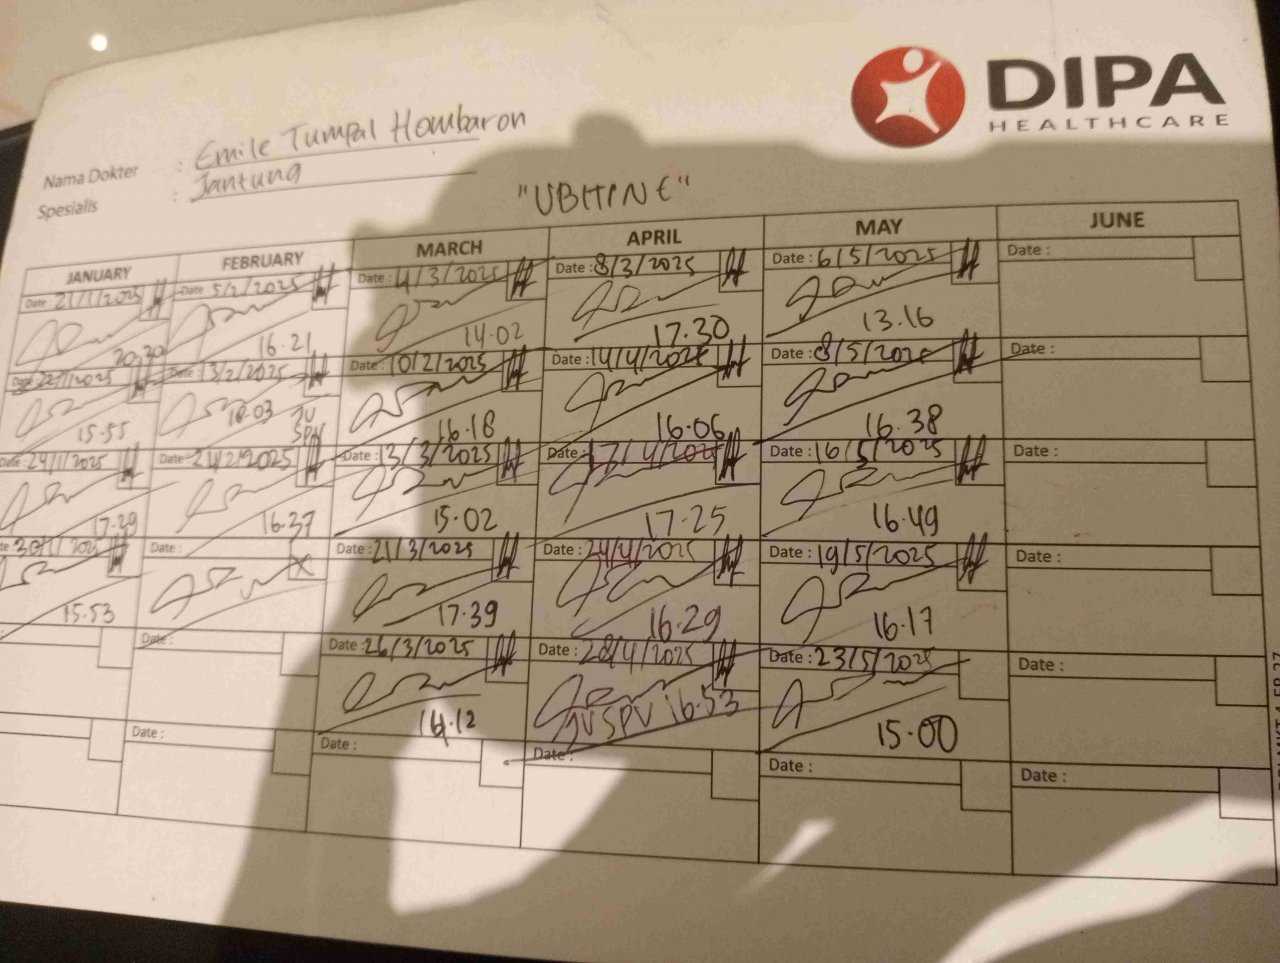 DIPA
HEALTHCARE
Nama Dokter : Emile Tumpal Hombaron
Spesialis : Jantung
"UBHINE"
JANUARY FEBRUARY MARCH APRIL MAY JUNE
Date : 21/1/2025 Date : 5/2/2025 Date : 4/3/2025 Date : 8/3/2025 Date : 6/5/2025 Date :
20.30 16.21 14.02 17.30 13.16
Date : 22/1/2025 Date : 13/2/2025 Date : 10/2/2025 Date : 14/4/2025 Date : 8/5/2025 Date :
15.55 18.03 JV SPV 16.18 16.06 16.38
Date : 24/1/2025 Date : 21/2/2025 Date : 13/3/2025 Date : 17/4/2025 Date : 16/5/2025 Date :
17.29 16.37 15.02 17.25 16.49
te 30/1/2025 Date : Date : 21/3/2025 Date : 24/4/2025 Date : 19/5/2025 Date :
15.53 17.39 16.29 16.17
Date : Date : 26/3/2025 Date : 28/4/2025 Date : 23/5/2025 Date :
16.12 JV SPV 16.53 15.00
Date : Date : Date : Date : Date :